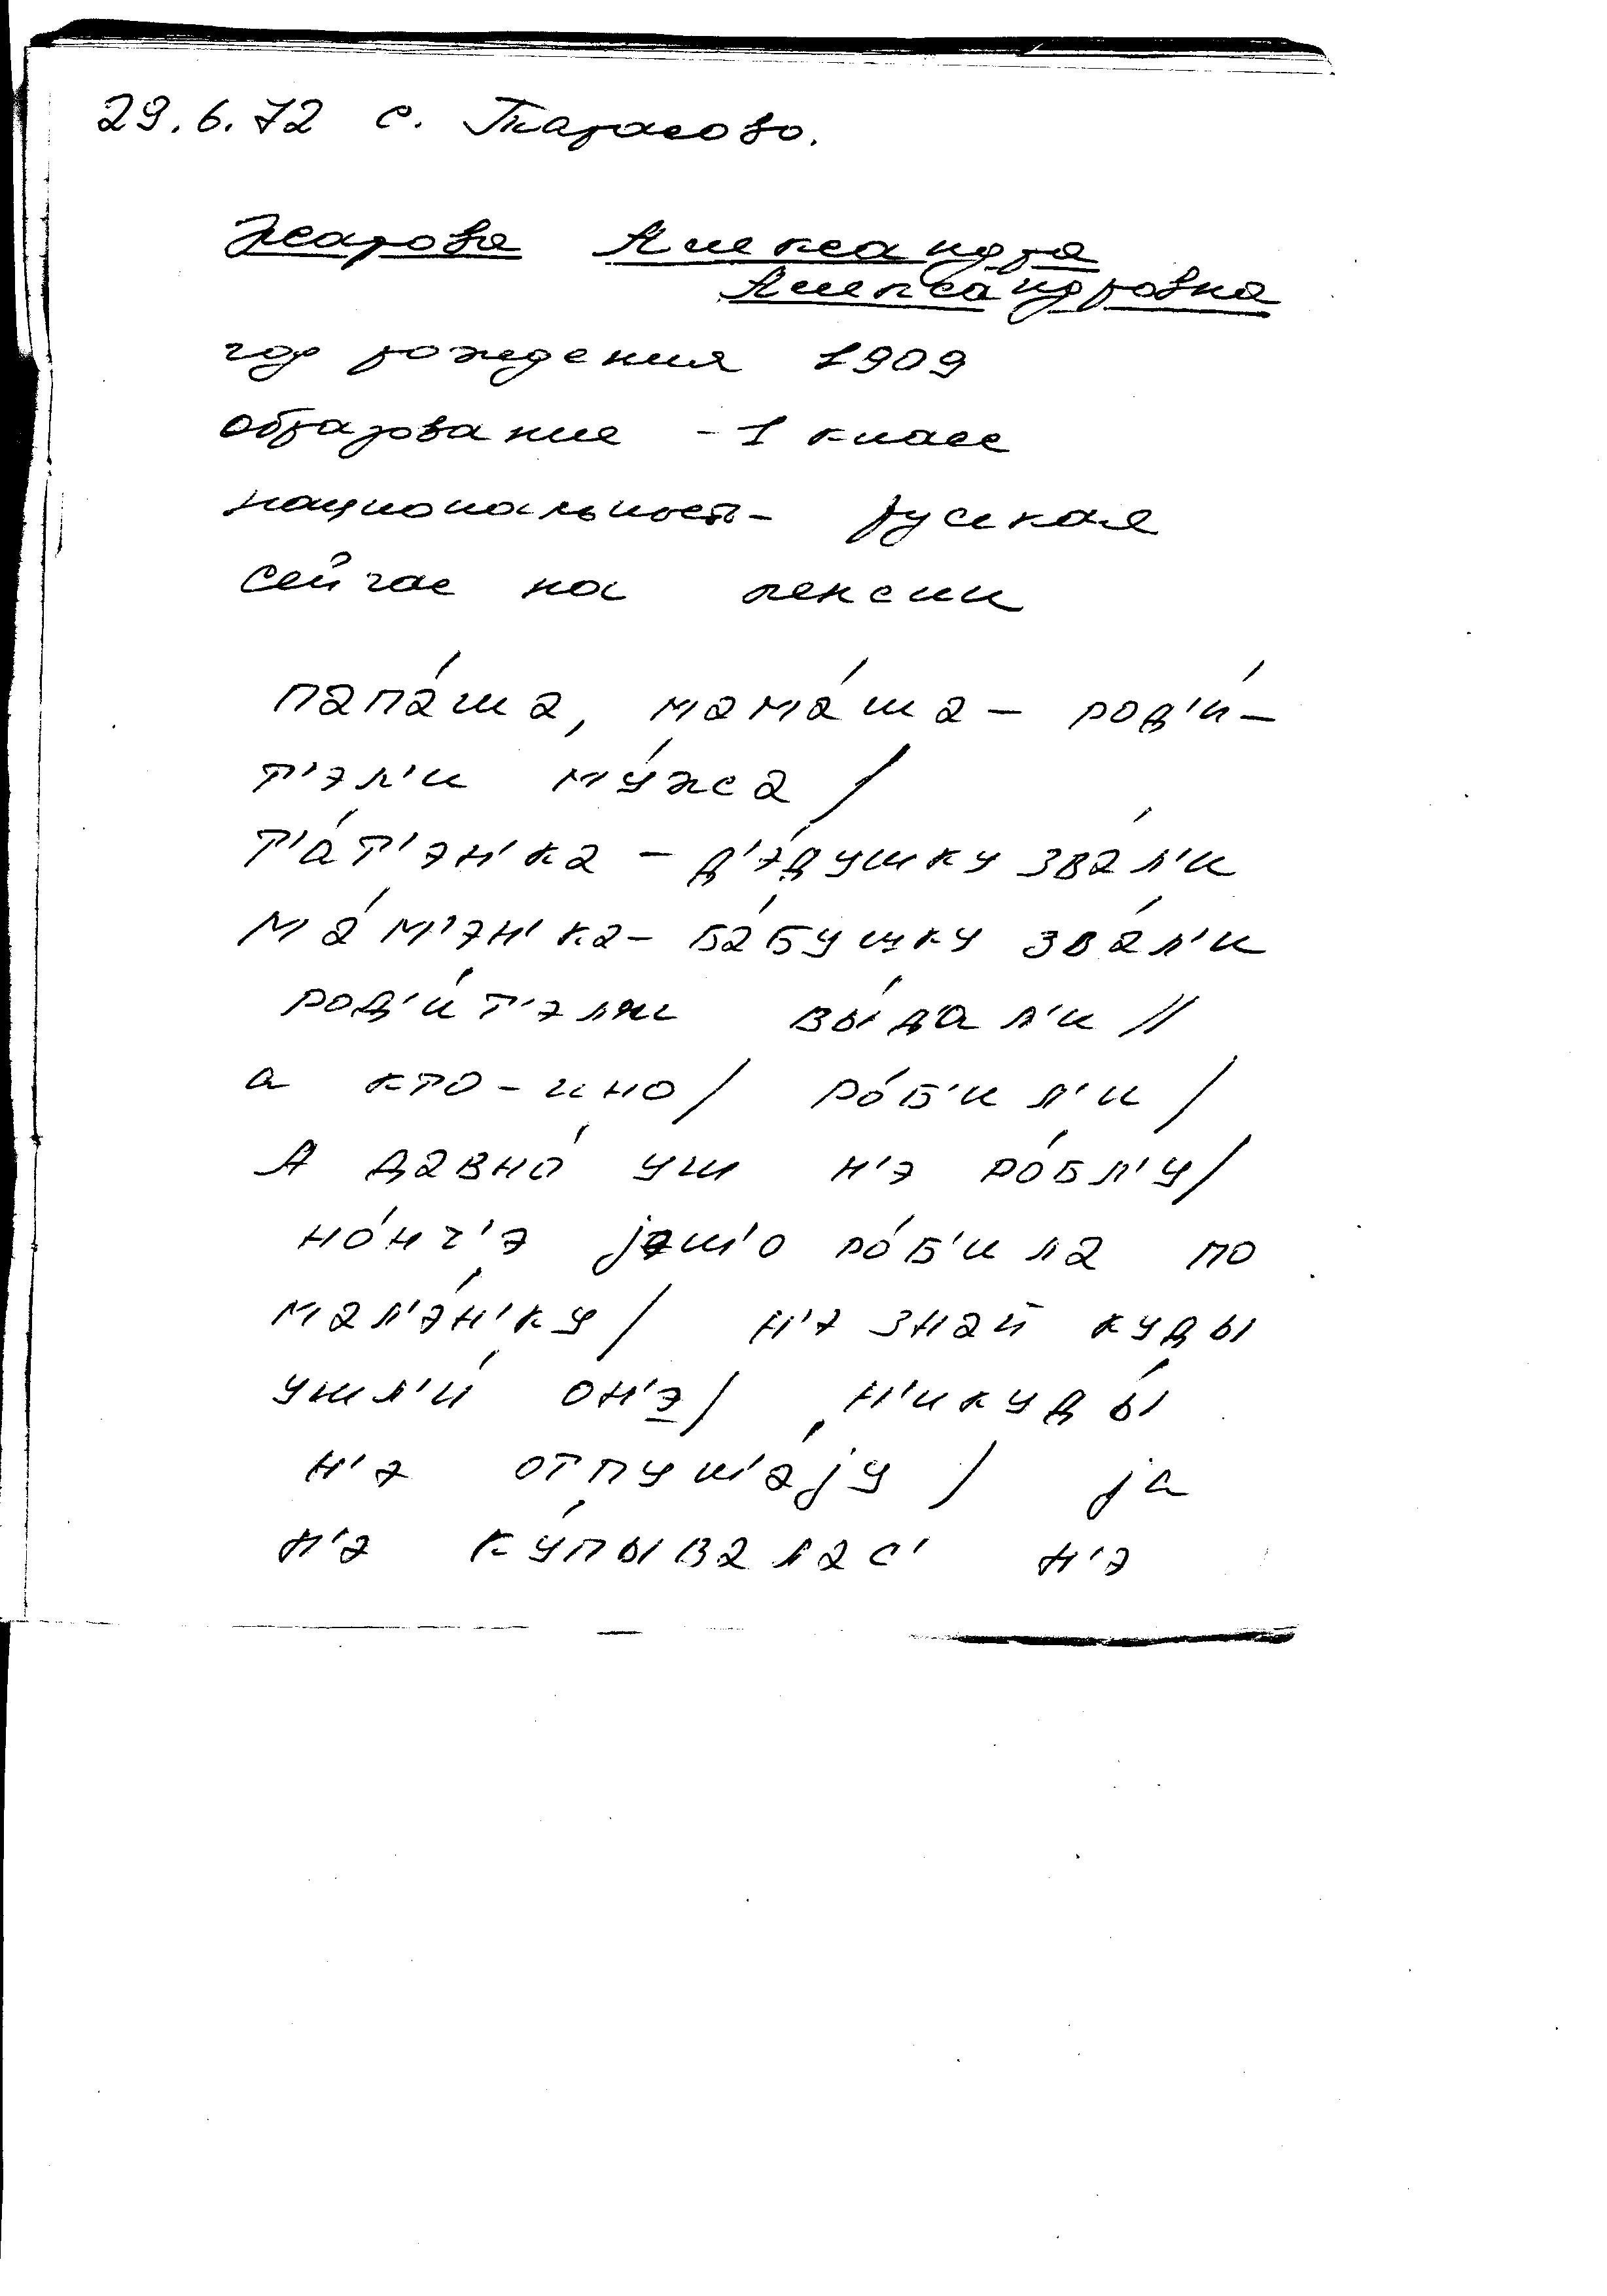 29.6.72 с. Тарасово.
Жарова Александра
Александровна
год рождения 1909
образование - 1 класс
национальность - русская
сейчас на пенсии
папа́ша, мама́ша – род'и́–
т'эл'и му́жа /
т'а́т'эн'ка – д'э́душку зва́л'и
ма́м'эн'ка – ба́бушку зва́л'и
род'и́т'эл'и вы́дал'и //
а кто-ино / ро́б'ил'и /
А давно́ уш н'э ро́бл'у /
но́нч'э jэш'о ро́б'ила по
мал'э́н'ку / н'э знай куды
ушл'и́ он'э / н'икуды́
н'э отпуш'а́jу / jа
н'э ку́пывалас' н'э